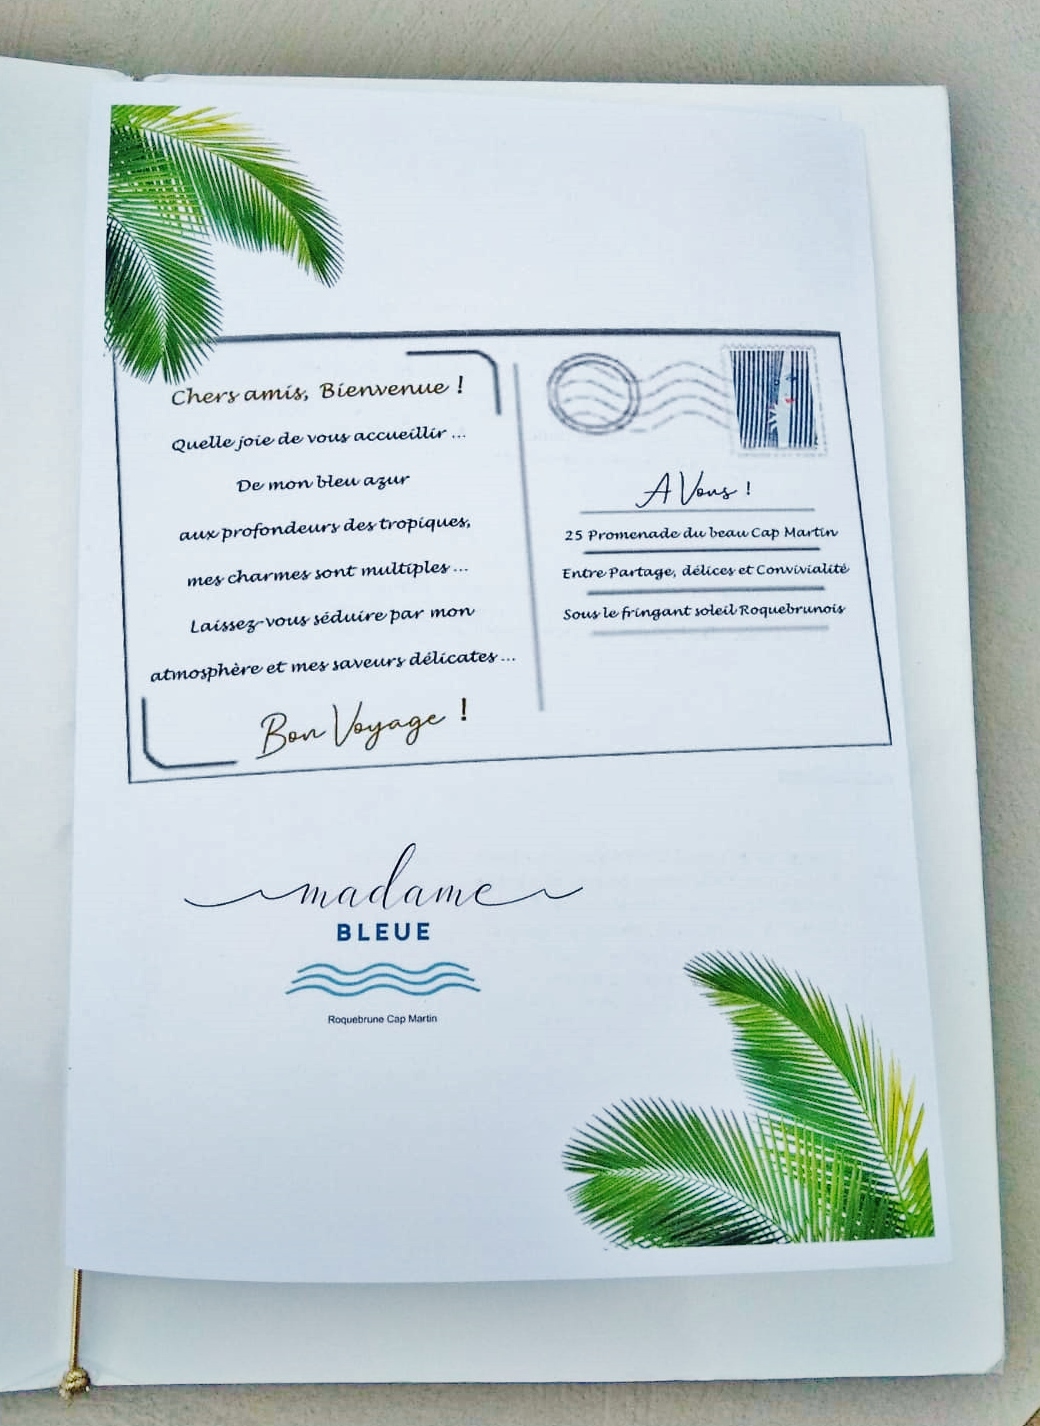 Chers amis, Bienvenue !
Quelle joie de vous accueillir ...
De mon bleu azur
aux profondeurs des tropiques,
mes charmes sont multiples ...
Laissez-vous séduire par mon
atmosphère et mes saveurs délicates ...
Bon Voyage !
A Vous !
25 Promenade du beau Cap Martin
Entre Partage, délices et Convivialité
Sous le fringant soleil Roquebrunois
madame
BLEUE
Roquebrune Cap Martin